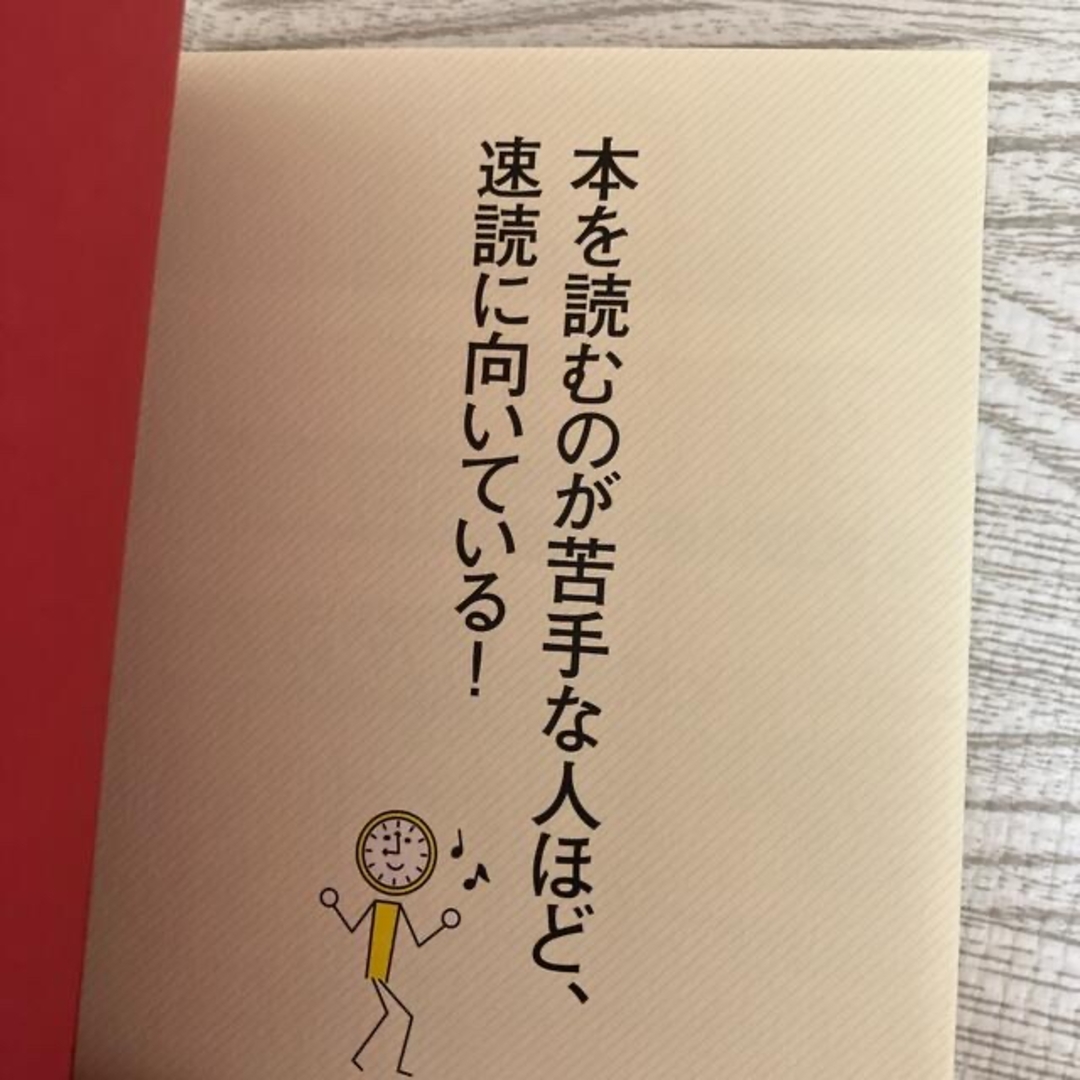 本を読むのが苦手な人ほど、
速読に向いている！